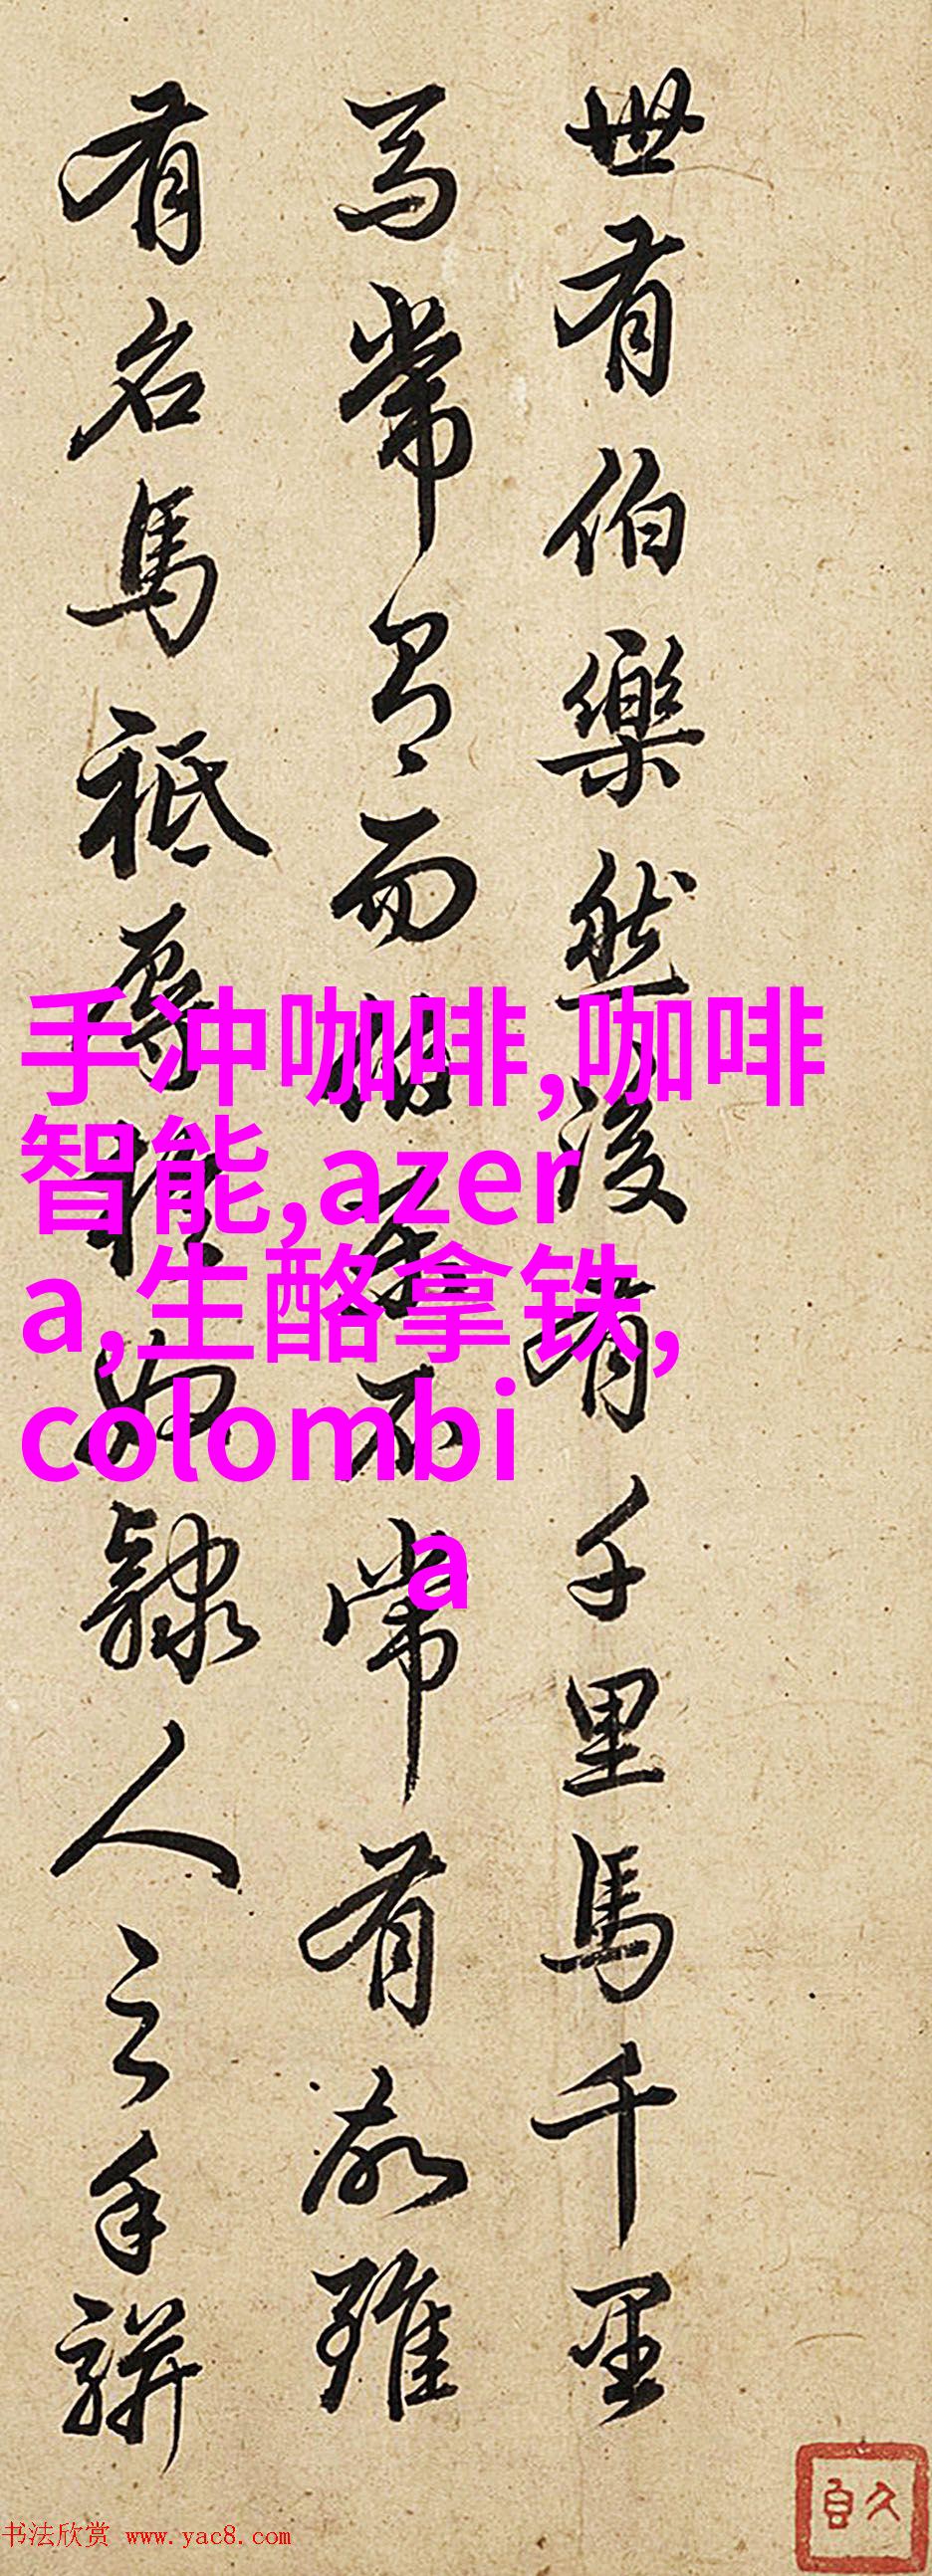 世有伯樂然後有千里馬千里
馬常有而伯樂不常有故雖
有名馬祗辱於奴隸人之手駢
手冲咖啡,咖啡
智能,azer
a,生酪拿铁,
colombi
a
书法欣赏 www.yac8.com